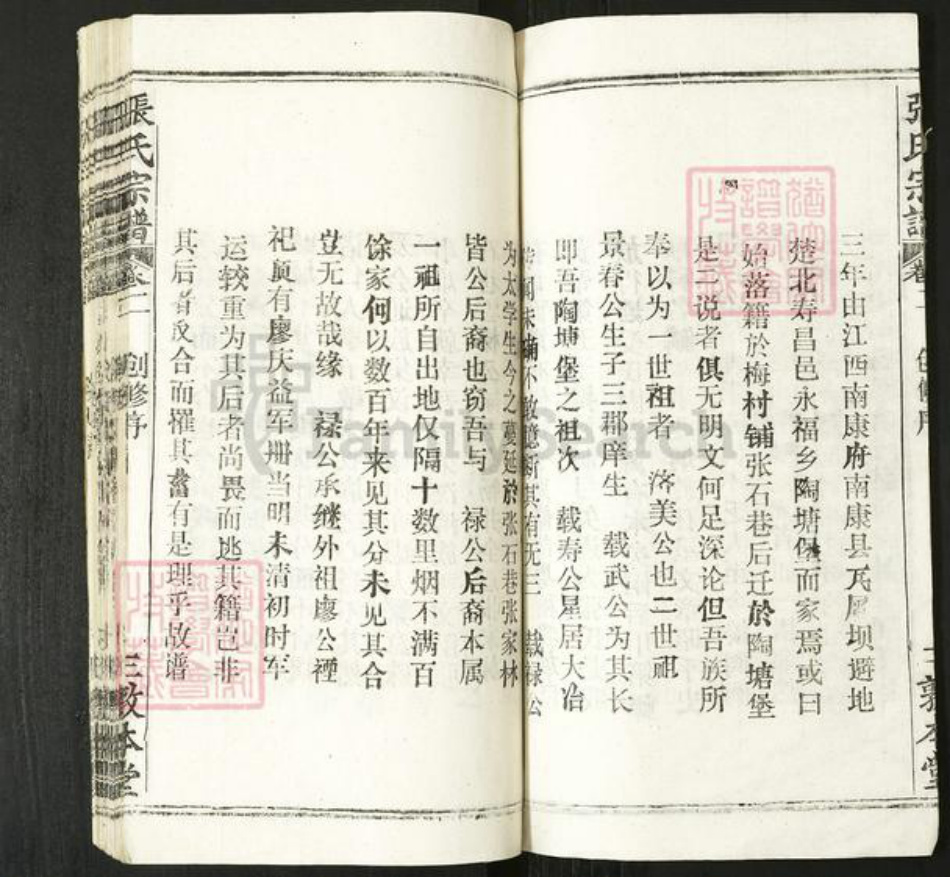 張氏宗譜 卷二 創修序 三 敦本堂
三年由江西南康府南康县瓦屑坝避地
楚北寿昌邑永福乡陶塘堡而家焉或曰
始落籍於梅村铺张石巷后迁於陶塘堡
是二说者俱无明文何足深论但吾族所
奉以为一世祖者 落美公也二世祖
景春公生子三郡庠生 载武公为其长
即吾陶塘堡之祖次 载寿公星居大冶
未确不敢臆断其有无三 载禄公
为太学生今之蔓延於张石巷张家林
皆公后裔也窃吾与 禄公后裔本属
一祖所自出地仅隔十数里烟不满百
馀家何以数百年来见其分未见其合
岂无故哉缘 禄公承继外祖廖公禋
祀颅有廖庆益军册当明末清初时军
运较重为其后者尚畏而逃其籍岂非
其后者反合而罹其 有是理乎故谱
張氏宗譜 卷二 创修序 三 敦本堂
FamilySearch